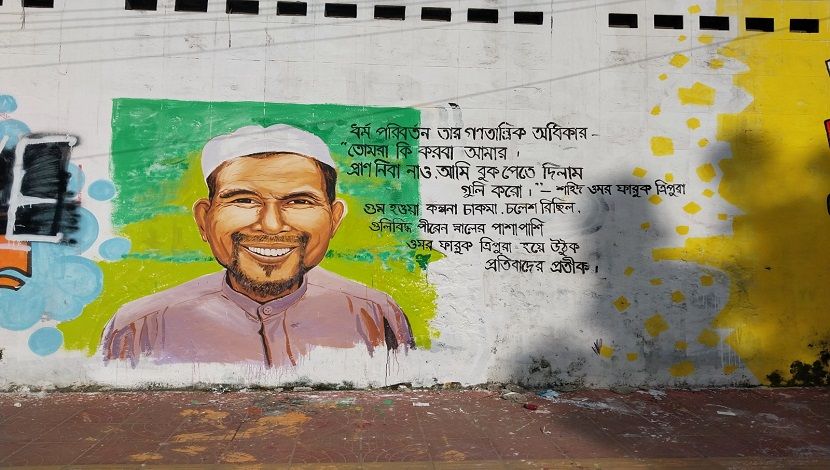 ধর্ম পরিবর্তন তার গণতান্ত্রিক অধিকার -
"তোমরা কি করবা আমার।
প্রাণ নিবা নাও, আমি বুক পেতে দিলাম
গুলি করো।" - শহিদ ওমর ফারুক ত্রিপুরা
গুম হওয়া কল্পনা চাকমা, চলেশ রিছিল,
গুলিবিদ্ধ পীরেন স্নালের পাশাপাশি
ওমর ফারুক ত্রিপুরা হয়ে উঠুক
প্রতিবাদের প্রতীক।